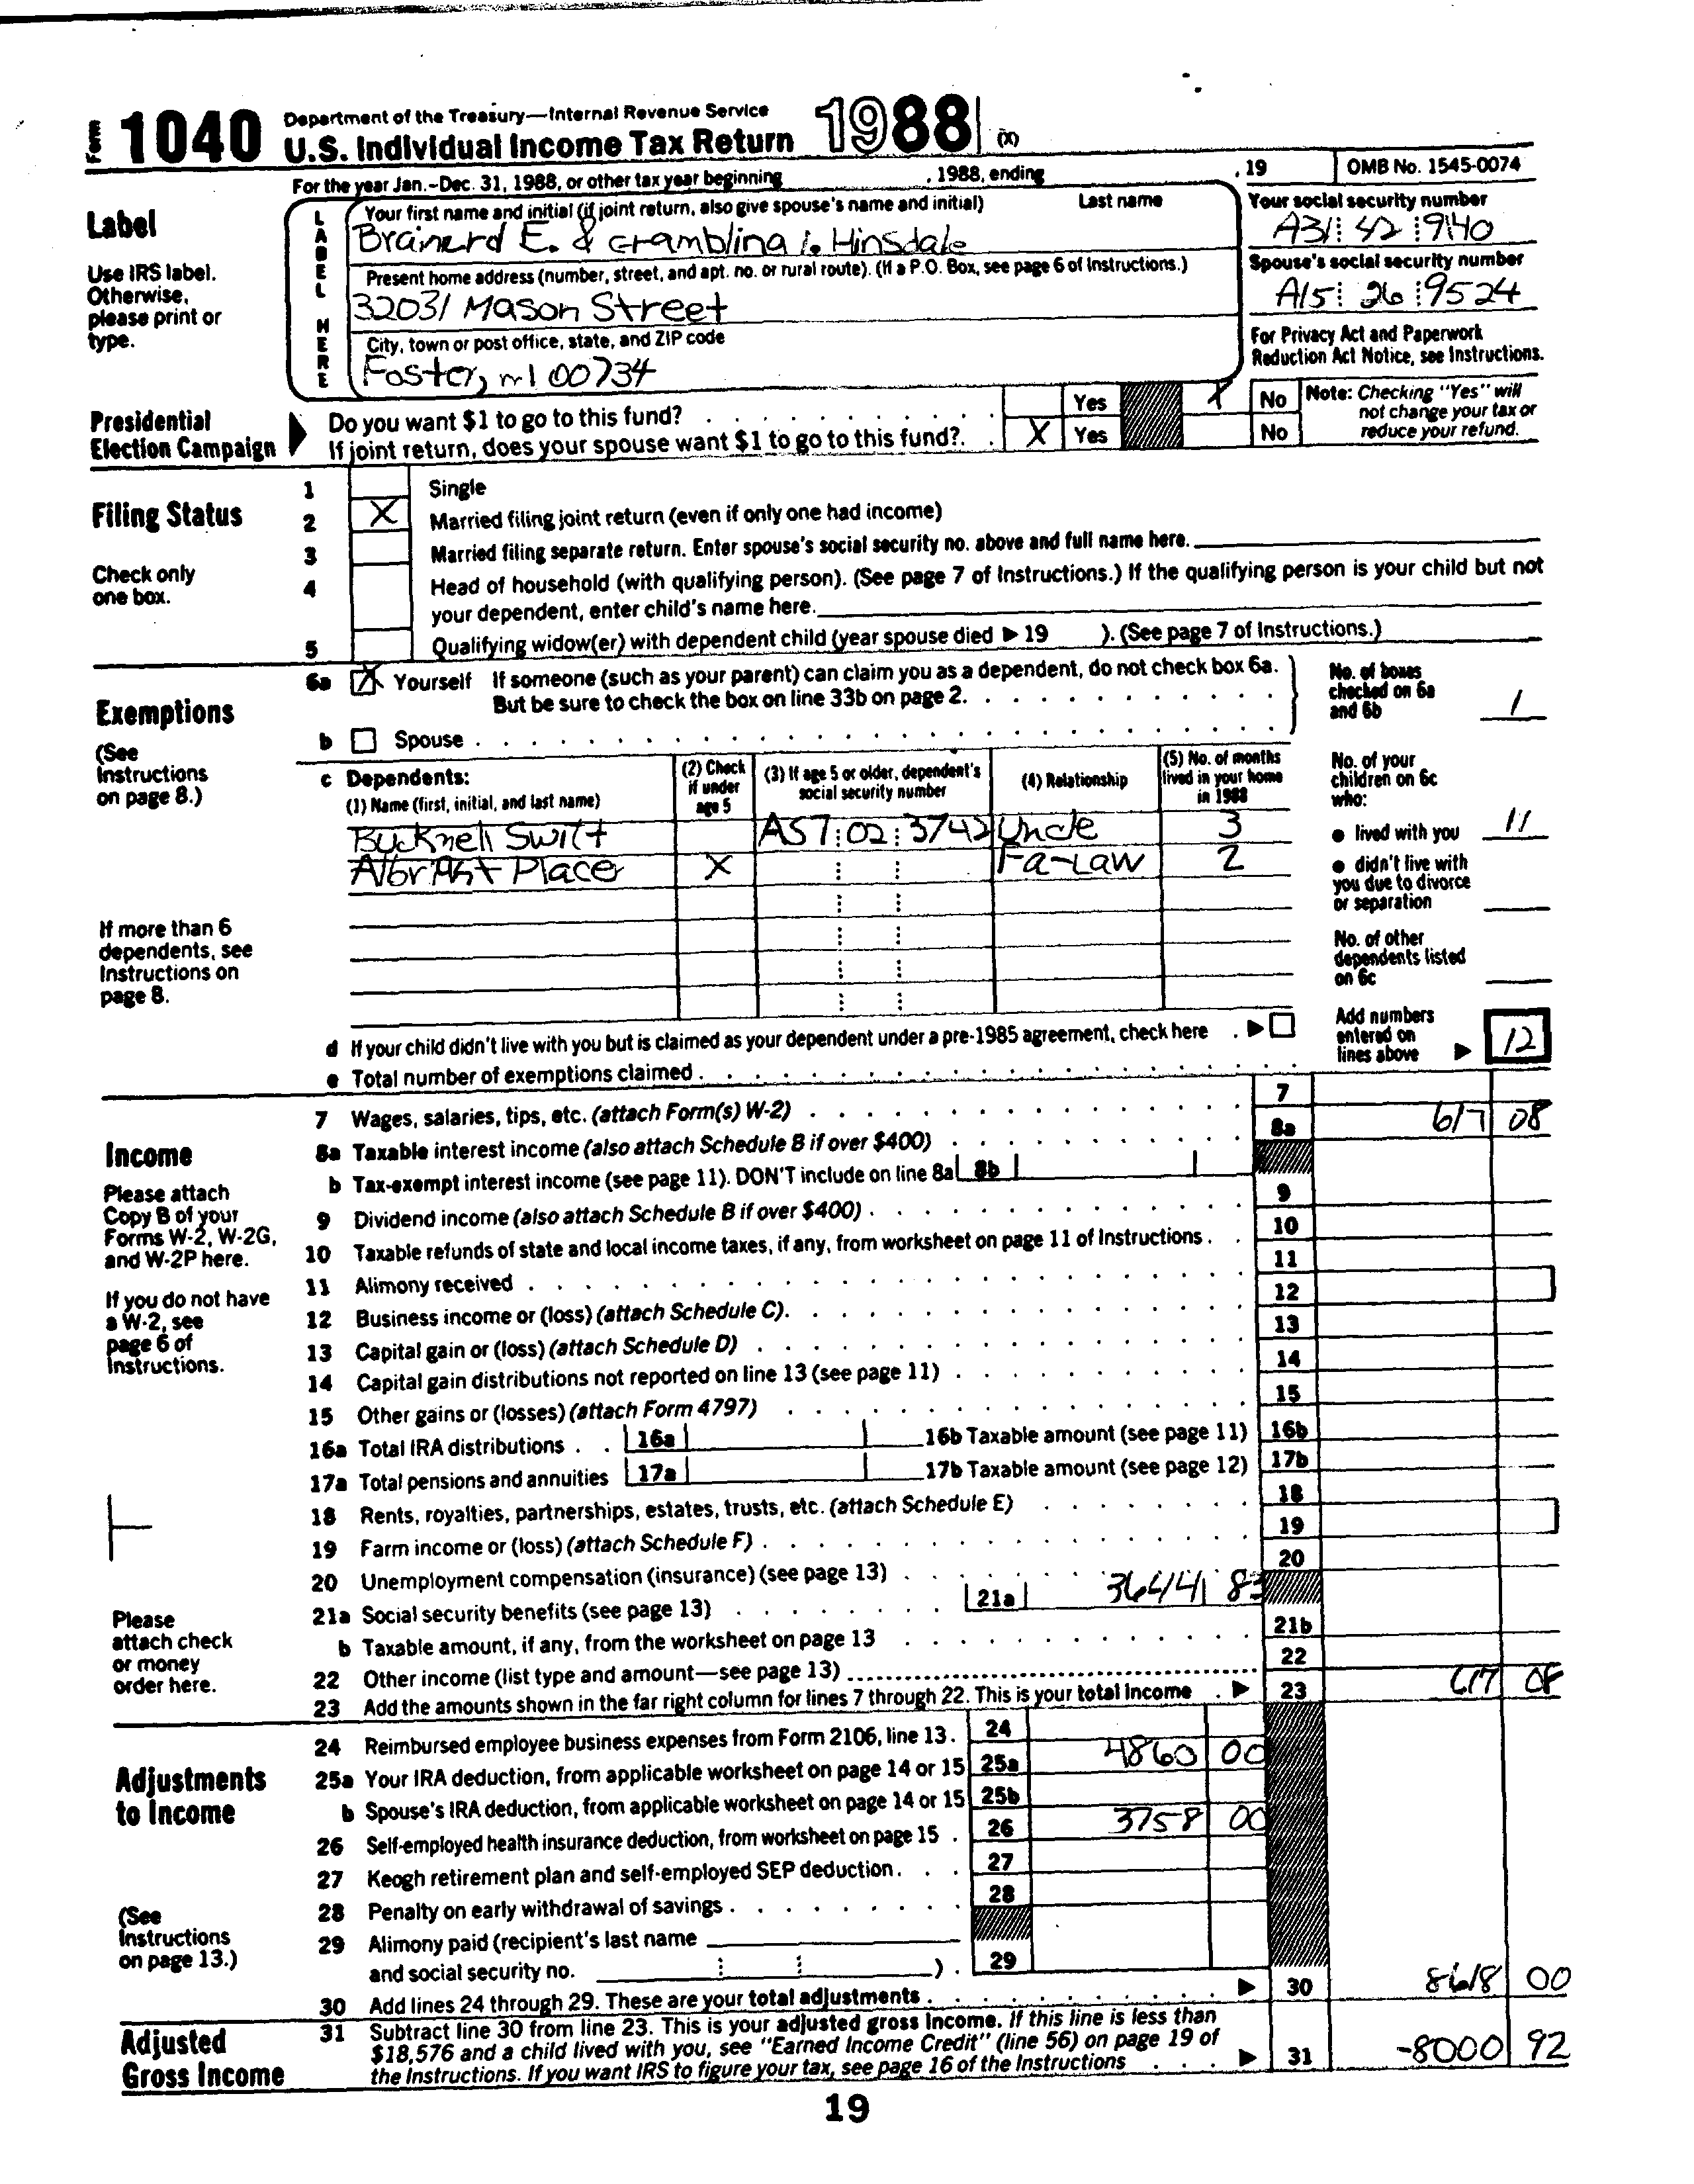 Form 1040 Department of the Treasury—Internal Revenue Service
U.S. Individual Income Tax Return 1988 (X)
For the year Jan.-Dec. 31, 1988, or other tax year beginning , 1988, ending , 19 OMB No. 1545-0074
Label
Use IRS label. Otherwise, please print or type.
LABEL HERE
Your first name and initial (if joint return, also give spouse's name and initial) Last name
Brainerd E. & Gramblina I. Hinsdale
Your social security number
A31 42 9140
Present home address (number, street, and apt. no. or rural route). (If a P.O. Box, see page 6 of Instructions.)
32031 Mason Street
Spouse's social security number
A15 26 9524
City, town or post office, state, and ZIP code
Foster, MI 00734
For Privacy Act and Paperwork Reduction Act Notice, see Instructions.
Presidential Election Campaign
Do you want $1 to go to this fund? Yes X No
If joint return, does your spouse want $1 to go to this fund? X Yes No
Note: Checking "Yes" will not change your tax or reduce your refund.
Filing Status
Check only one box.
1 Single
2 X Married filing joint return (even if only one had income)
3 Married filing separate return. Enter spouse's social security no. above and full name here.
4 Head of household (with qualifying person). (See page 7 of Instructions.) If the qualifying person is your child but not
your dependent, enter child's name here.
5 Qualifying widow(er) with dependent child (year spouse died ▶ 19 ). (See page 7 of Instructions.)
Exemptions
(See Instructions on page 8.)
6a X Yourself If someone (such as your parent) can claim you as a dependent, do not check box 6a.
But be sure to check the box on line 33b on page 2.
b Spouse
No. of boxes checked on 6a and 6b 1
c Dependents:
(1) Name (first, initial, and last name)
(2) Check if under age 5
(3) If age 5 or older, dependent's social security number
(4) Relationship
(5) No. of months lived in your home in 1988
Bucknell Swift A57 02 3742 Uncle 3
Albright Place X Fa-Law 2
No. of your children on 6c who:
● lived with you 11
● didn't live with you due to divorce or separation
No. of other dependents listed on 6c
If more than 6 dependents, see Instructions on page 8.
d If your child didn't live with you but is claimed as your dependent under a pre-1985 agreement, check here ▶
e Total number of exemptions claimed
Add numbers entered on lines above ▶ 12
Income
Please attach Copy B of your Forms W-2, W-2G, and W-2P here.
If you do not have a W-2, see page 6 of Instructions.
Please attach check or money order here.
7 Wages, salaries, tips, etc. (attach Form(s) W-2) 7
8a Taxable interest income (also attach Schedule B if over $400) 8a 617 08
b Tax-exempt interest income (see page 11). DON'T include on line 8a 8b
9 Dividend income (also attach Schedule B if over $400) 9
10 Taxable refunds of state and local income taxes, if any, from worksheet on page 11 of Instructions 10
11 Alimony received 11
12 Business income or (loss) (attach Schedule C) 12
13 Capital gain or (loss) (attach Schedule D) 13
14 Capital gain distributions not reported on line 13 (see page 11) 14
15 Other gains or (losses) (attach Form 4797) 15
16a Total IRA distributions 16a 16b Taxable amount (see page 11) 16b
17a Total pensions and annuities 17a 17b Taxable amount (see page 12) 17b
18 Rents, royalties, partnerships, estates, trusts, etc. (attach Schedule E) 18
19 Farm income or (loss) (attach Schedule F) 19
20 Unemployment compensation (insurance) (see page 13) 20
21a Social security benefits (see page 13) 21a 36441 83
b Taxable amount, if any, from the worksheet on page 13 21b
22 Other income (list type and amount—see page 13) 22
23 Add the amounts shown in the far right column for lines 7 through 22. This is your total income ▶ 23 617 08
Adjustments to Income
(See Instructions on page 13.)
24 Reimbursed employee business expenses from Form 2106, line 13. 24
25a Your IRA deduction, from applicable worksheet on page 14 or 15 25a 4860 00
b Spouse's IRA deduction, from applicable worksheet on page 14 or 15 25b
26 Self-employed health insurance deduction, from worksheet on page 15 26 3758 00
27 Keogh retirement plan and self-employed SEP deduction 27
28 Penalty on early withdrawal of savings 28
29 Alimony paid (recipient's last name
and social security no. ) 29
30 Add lines 24 through 29. These are your total adjustments ▶ 30 8618 00
Adjusted Gross Income
31 Subtract line 30 from line 23. This is your adjusted gross income. If this line is less than
$18,576 and a child lived with you, see "Earned Income Credit" (line 56) on page 19 of
the Instructions. If you want IRS to figure your tax, see page 16 of the Instructions ▶ 31 -8000 92
19